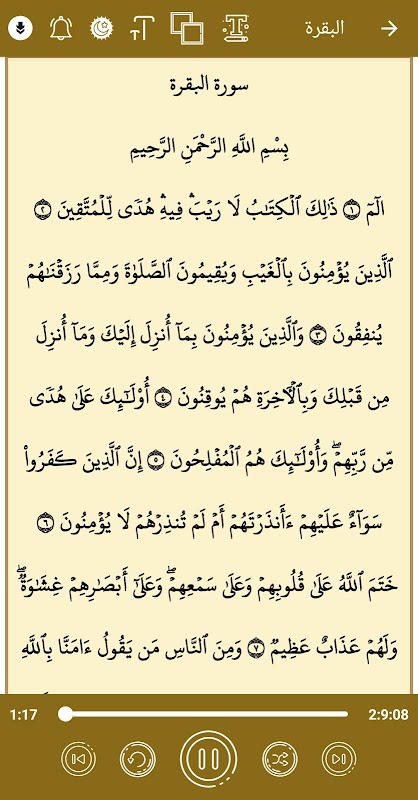 البقرة
سورة البقرة
بِسْمِ اللَّهِ الرَّحْمَنِ الرَّحِيمِ
الٓمٓ ۝١ ذَٰلِكَ ٱلْكِتَٰبُ لَا رَيْبَۛ فِيهِۛ هُدًى لِّلْمُتَّقِينَ ۝٢
ٱلَّذِينَ يُؤْمِنُونَ بِٱلْغَيْبِ وَيُقِيمُونَ ٱلصَّلَوٰةَ وَمِمَّا رَزَقْنَٰهُمْ
يُنفِقُونَ ۝٣ وَٱلَّذِينَ يُؤْمِنُونَ بِمَآ أُنزِلَ إِلَيْكَ وَمَآ أُنزِلَ
مِن قَبْلِكَ وَبِٱلْأَخِرَةِ هُمْ يُوقِنُونَ ۝٤ أُو۟لَٰٓئِكَ عَلَىٰ هُدًى
مِّن رَّبِّهِمْۖ وَأُو۟لَٰٓئِكَ هُمُ ٱلْمُفْلِحُونَ ۝٥ إِنَّ ٱلَّذِينَ كَفَرُوا۟
سَوَآءٌ عَلَيْهِمْ ءَأَنذَرْتَهُمْ أَمْ لَمْ تُنذِرْهُمْ لَا يُؤْمِنُونَ ۝٦
خَتَمَ ٱللَّهُ عَلَىٰ قُلُوبِهِمْ وَعَلَىٰ سَمْعِهِمْۖ وَعَلَىٰٓ أَبْصَٰرِهِمْ غِشَٰوَةٌۖ
وَلَهُمْ عَذَابٌ عَظِيمٌ ۝٧ وَمِنَ ٱلنَّاسِ مَن يَقُولُ ءَامَنَّا بِٱللَّهِ
1:17
2:9:08